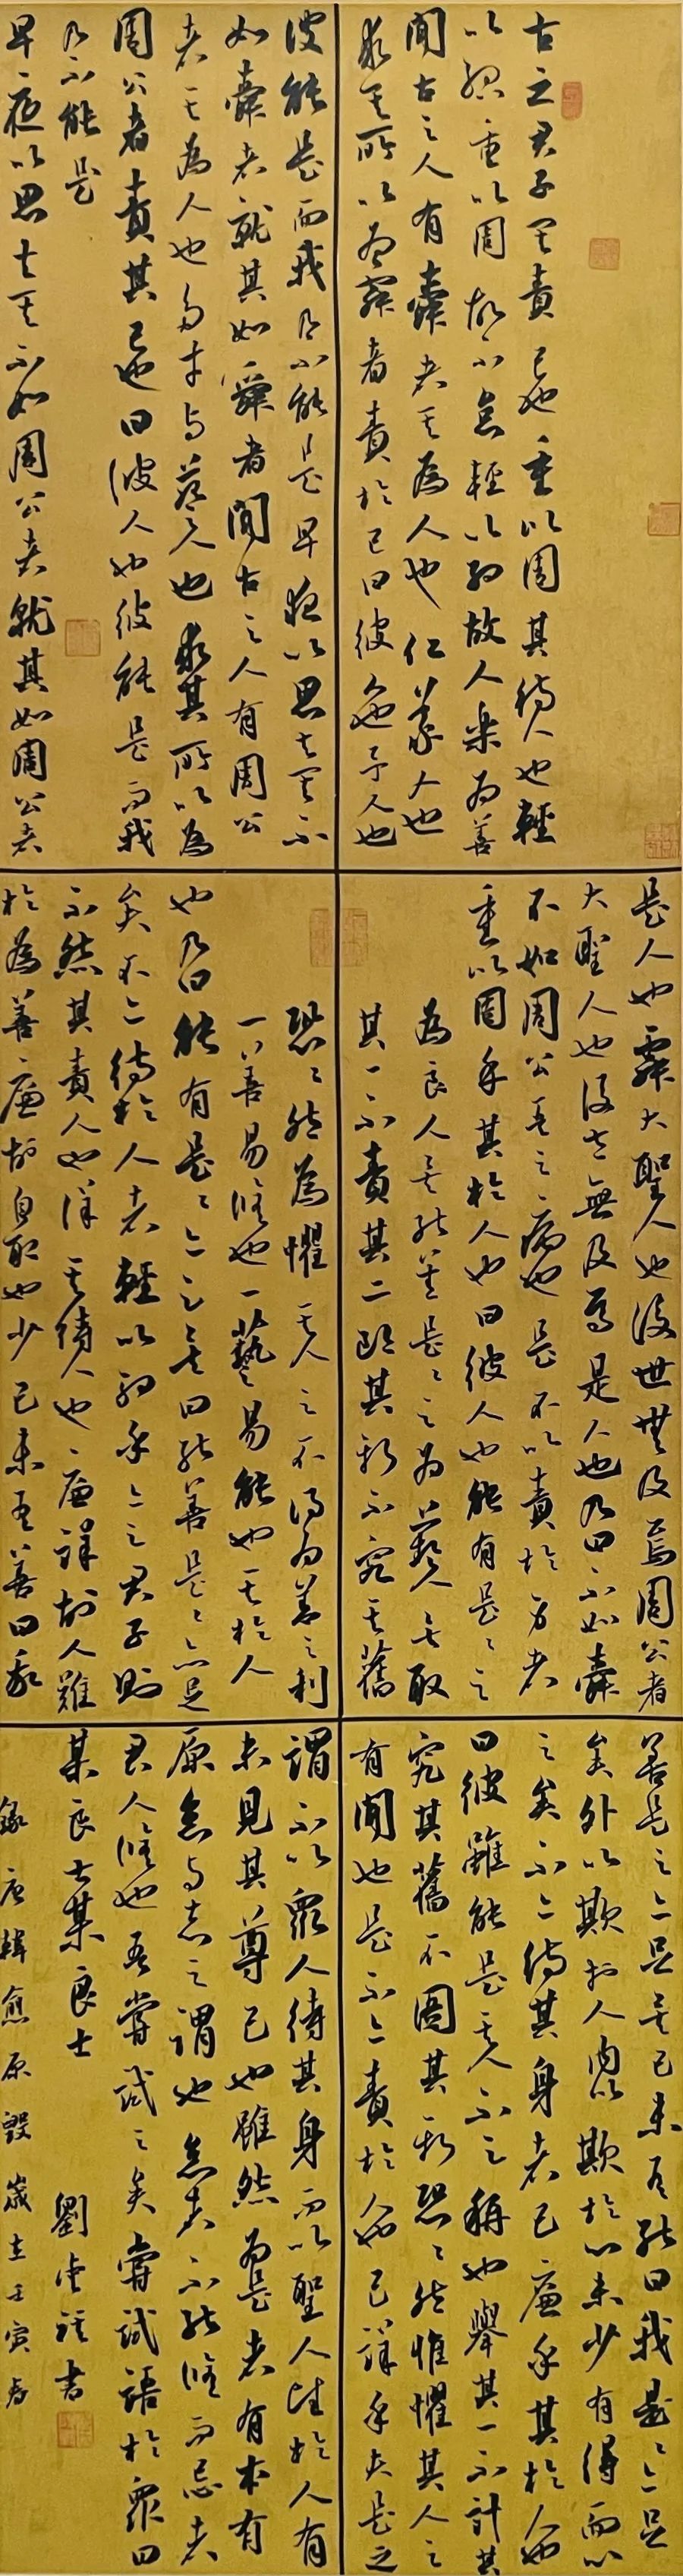 古之君子其責己也重以周其待人也輕
以約重以周故不怠輕以約故人樂為善
聞古之人有舜者其為人也仁義人也
求其所以為舜者責於己曰彼人也予人也
彼能是而我乃不能是早夜以思去其不
如舜者就其如舜者聞古之人有周公
者其為人也多才與藝人也求其所以為
周公者責其己也曰彼人也彼能是而我
乃不能是
早夜以思去其不如周公者就其如周公者
是人也舜大聖人也後世無及焉周公者
大聖人也後世無及焉是人也乃曰不如舜
不如周公吾之病也是不以責於身者
重以周乎其於人也曰彼人也能有是是足
為良人矣能善是是足為藝人矣取
其一不責其二即其新不究其舊
恐恐然為懼其人之不得為善之利
一善易修也一藝易能也其於人
也乃曰能有是是亦足矣曰能善是是亦足
矣不亦待於人者輕以約乎今之君子則
不然其責人也詳其待人也廉詳故人難
於為善廉故自取也少己未有善曰我
善是是亦足矣己未有能曰我是是亦足
矣外以欺於人內以欺於心未少有得而止
之矣不亦待其身者已廉乎其於人也
曰彼雖能是其人不足稱也舉其一不計其
究其舊不圖其新恐恐然惟懼其人之
有聞也是不亦責於人也已詳乎夫是之
謂不以眾人待其身而以聖人望於人吾
未見其尊己也雖然為是者有本有
原怠與忌之謂也怠者不能修而忌者
畏人修也吾嘗試之矣嘗試語於眾曰
某良士某良士
劉書
錄唐韓愈原毀歲在壬寅春